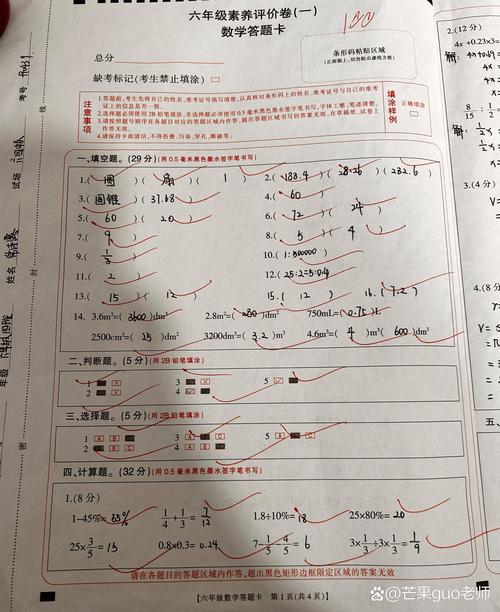 六年级素养评价卷(一)
100
数学答题卡
总分
条形码粘贴区域
(正面朝上,切勿贴出虚线方框)
缺考标记(考生禁止填涂)
注意事项
1.答题前,考生先将自己的姓名、准考证号填写清楚,认真核对条形码上的姓名、准考证号与自己的准考证上的信息是否一致。
2.选择题必须使用2B铅笔填涂,非选择题必须使用0.5毫米黑色墨水签字笔书写,字体工整,笔迹清楚。
3.请按照题号顺序在各题目对应的答题区域内作答,超出答题区域书写的答案无效,在草稿纸、试卷上作答无效。
4.请保持卡面清洁,不得折叠、污染、穿孔、撕破等。
填涂样例
正确填涂
一、填空题。(29分)(用0.5毫米黑色墨水签字笔书写)
1.( 圆 )( 扇 )( 1 ) 2.( 188.4 )( 28.26 )( 282.6 )
3.( 圆锥 )( 37.68 ) 4.( 60 )
5.( 60 )( 20 ) 6.( 72 )( 24 )
7.( 9 ) 8.( 5 )( 4 )
9.( 1/3 ) 10.(1:500000)
11.( 2 ) 12.(25:2=5:0.4)
13.( 15 )( 12 ) 15.( 12 ) 16.( 7.2 )
14. 3.6m²=( 360 )dm² 2.8m²=( 280 )dm² 750mL=( 0.75 )L
2500cm²=( 25 )dm² 3200dm³=( 3.2 )m³ 4.6m³=( 4 )m³( 600 )dm³
二、判断题。(5分)(用2B铅笔填涂)
1 3 5
2 4
三、选择题。(5分)(用2B铅笔填涂)
1 A B 3 A C 5 A C
2 A B 4 B C
四、计算题。(32分)(用0.5毫米黑色墨水签字笔书写)
1.(8分)
1-45%= 55% 1/4+1/3= 7/12 1.8÷10%= 18 25×80%= 20
25×3/5= 15 0.8×0.3= 0.24 7-1/5-4/5= 6 3×1/3÷3×1/3= 1/9
请在各题目的答题区域内作答,超出黑色矩形边框限定区域的答案无效
【六年级数学答题卡 第1页(共4页)】
考号
考场
姓名
年级
线
封
密
2.(12分)
4x+0.23×3
解:
3.(4分)
4.(8分
五、
@芒果guo老师